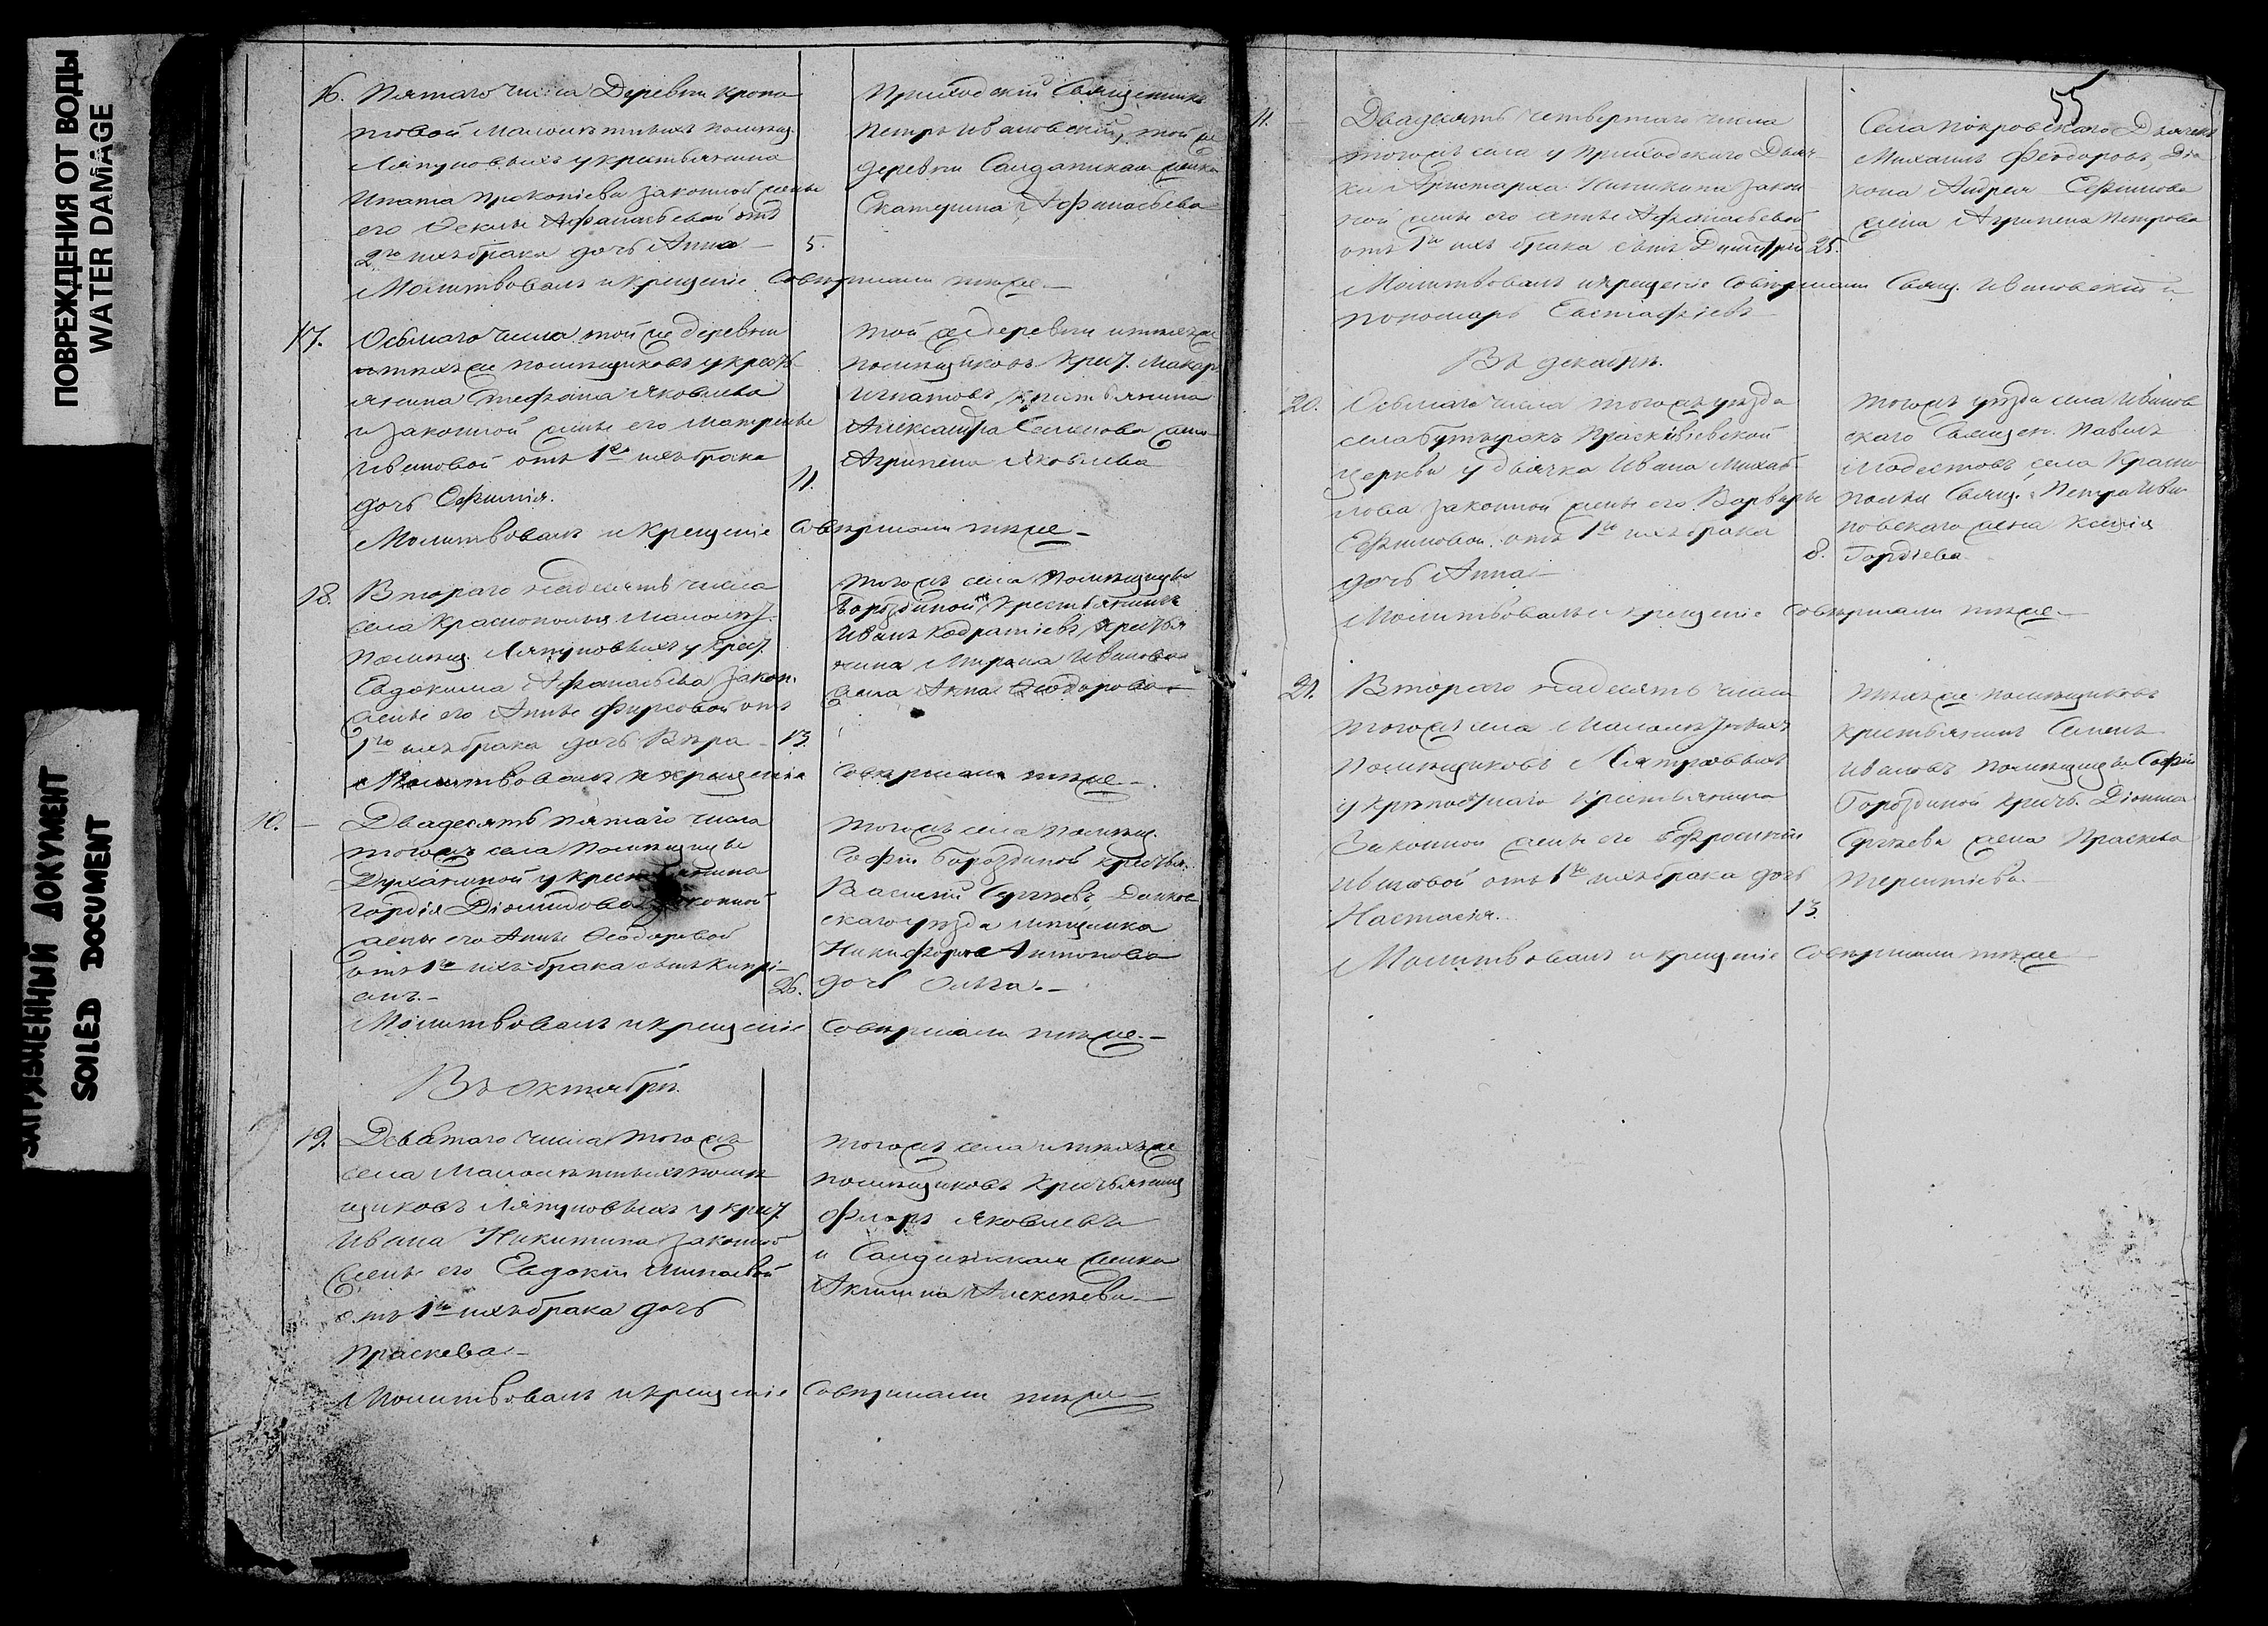 ПОВРЕЖДЕНИЯ ОТ ВОДЫ
WATER DAMAGE
ЗАГРЯЗНЕННЫЙ ДОКУМЕНТ
SOILED DOCUMENT
16. Пятаго числа Деревни Кропо
товой Малолѣтныхъ помѣщ.
Ляпуновыхъ у крестьянина
Ипата Прокопіева законной жены
его Феклы Афанасьевой отъ
2го ихъ брака дочь Анна — 5.
Приходскій Священникъ
Петръ Ивановскій, той же
деревни Солдатская женка
Екатерина Афанасьева
Молитвовалъ и крещеніе совершали тѣже —
17. Осьмаго числа той же деревни
тѣхъ же помѣщиковъ у кресть
янина Стефана Яковлева
и законной жены его Матрены
Ивановой отъ 1го ихъ брака
дочь Ефимія. 11.
той же деревни и тѣхъ же
помѣщиковъ крест. Макар
Игнатовъ, крестьянина
Александра Семенова жена
Агрипена Яковлева
Молитвовалъ и крещеніе совершали тѣже —
18. Втораго надесять числа
села Краснополья малолѣт.
помѣщ. Ляпуновыхъ у крест.
Евдокима Афанасьева закон.
жены его Анны Фирсовой отъ
1го ихъ брака дочь Вѣра — 13.
того жъ села Помѣщицы
Бороздиной крестьянинъ
Иванъ Кодратіевъ, крестья
нина Мирона Иванова
жена Анна Феодорова —
Молитвовалъ и крещеніе совершали тѣже —
10. — Двадесять пятаго числа
того жъ села Помѣщицы
у крестьянина
Гордія Діомидова законной
жены его Анны Феодоровой
отъ 1го ихъ брака сынъ Кипрі-
анъ. — 26.
того жъ села помѣщ.
Софіи Бороздиной крестья.
Василій Сергѣевъ, Данков
скаго уѣзда мѣщанка
Никифора Антонова
дочь —
Молитвовалъ и крещеніе совершали тѣже. —
Въ октябрѣ.
19. Девятаго числа того жъ
села Малолѣтныхъ помѣ
щиковъ Ляпуновыхъ у крест.
Ивана Никитина законной
жены его Евдокіи Минаевой
отъ 1го ихъ брака дочь
Праскева. —
того жъ села и тѣхъ же
помѣщиковъ крестьянинъ
Флоръ Яковлевъ
и Солдатская женка
Акилина Алексѣева —
Молитвовалъ и крещеніе совершали тѣже —
55
11. Двадесять четвертаго числа
того жъ села у Приходскаго Дьяч-
ка Аристарха Никитина закон
ной жены его Анны Афанасьевой
отъ 1го ихъ брака сынъ Димитрій 25.
Села Покровскаго Дьячекъ
Михаилъ Феодоровъ, Діа
кона Андрея Ефимова
жена Агрипена Петрова
Молитвовалъ и крещеніе совершали Свящ. Ивановскій и
пономарь Евстафіевъ
Въ декабрѣ.
20. Осьмаго числа того жъ уѣзда
села Бутырокъ Праскевіевской
церкви у дьячка Ивана Михай
лова законной жены его Варвары
Ефимовой отъ 1го ихъ брака
дочь Анна — 8.
того жъ уѣзда села Иванов
скаго Священ. Павелъ
Модестовъ, села Красно
полья Свящ. Петра Ива
новскаго жена Ксенія
Гордіева.
Молитвовалъ и крещеніе совершали тѣже —
21. Втораго надесять числа
того жъ села Малолѣтныхъ
Помѣщиковъ
у крѣпостнаго крестьянина
Законной жены его Ефросиніи
Ивановой отъ 1го ихъ брака дочь
Настасія. 13.
тѣхъ же помѣщиковъ
крестьянинъ Семенъ
Ивановъ Помѣщицы Софіи
Бороздиной крест. Діонисія
Сергѣева жена Праскева
Терентіева. —
Молитвовалъ и крещеніе совершали тѣже —